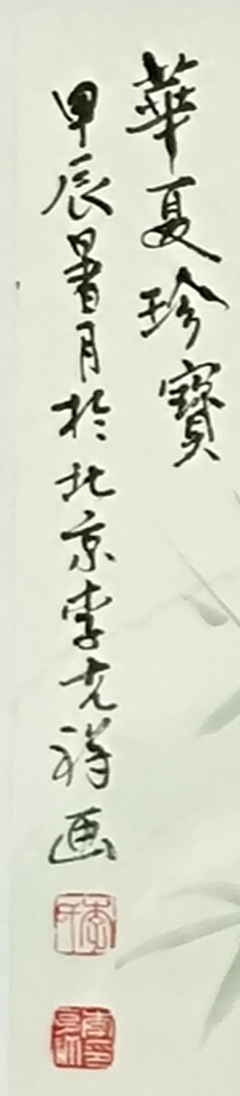 華夏珍寶
甲辰暑月於北京李光祥画